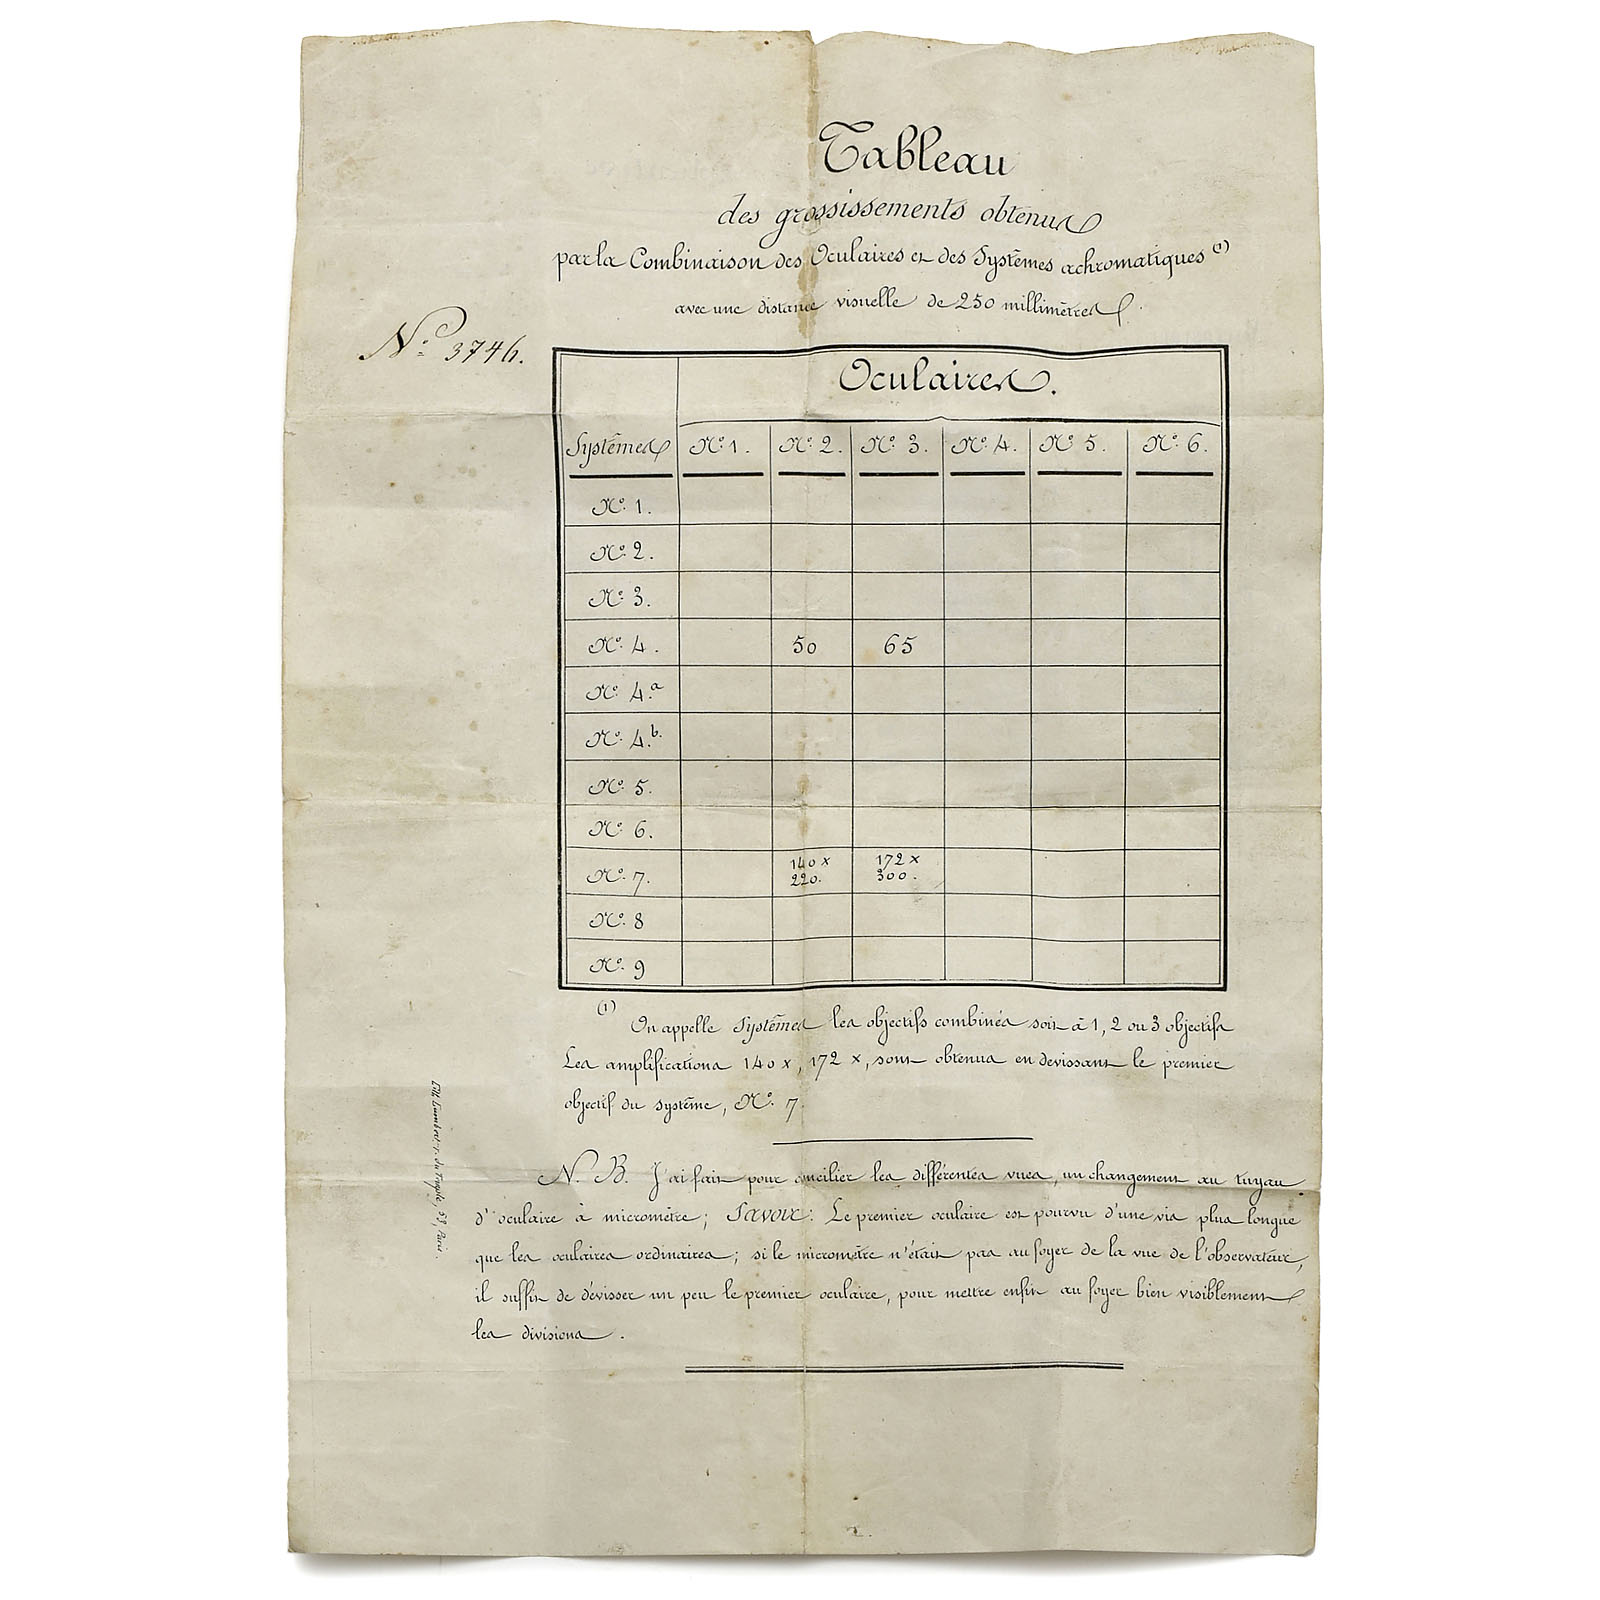 Tableau
des grossissements obtenus
par la Combinaison des Oculaires et des Systèmes achromatiques (1)
avec une distance visuelle de 250 millimètres.
No. 3746.
Oculaires.
Systèmes No. 1. No. 2. No. 3. No. 4. No. 5. No. 6.
No. 1.
No. 2.
No. 3.
No. 4. 50 65
No. 4.a
No. 4.b.
No. 5.
No. 6.
140 x 172 x
No. 7. 220. 300.
No. 8
No. 9
(1)
On appelle Systèmes les objectifs combinés soit à 1, 2 ou 3 objectifs
Les amplifications 140 x, 172 x, sont obtenus en devissant le premier
objectif du système, No. 7.
N. B. J'ai fait pour concilier les différentes vues, un changement au tuyau
d'oculaire à micromètre; Savoir: Le premier oculaire est pourvu d'une vis plus longue
que les oculaires ordinaires; si le micromètre n'était pas au foyer de la vue de l'observateur,
il suffit de dévisser un peu le premier oculaire, pour mettre enfin au foyer bien visiblement
les divisions.
Lith Lambert r. du Temple, 58, Paris.